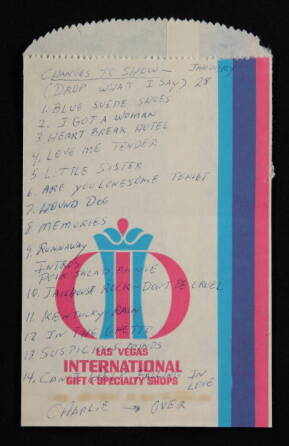 CHANGES TO SHOW - JANUARY
(DROP WHAT I SAY) 28
1. BLUE SUEDE SHOES
2. I GOT A WOMAN
3. HEART BREAK HOTEL
4. LOVE ME TENDER
5. LITTLE SISTER
6. ARE YOU LONESOME TONIGHT
7. HOUND DOG
8 MEMORIES
9. RUNNAWAY
INTROS
POLK SALAD ANNIE
10. JAILHOUSE ROCK - DON'T BE CRUEL
11. KENTUCKY RAIN
12 IN THE GHETTO
13. SUSPICIOUS MINDS
14. CAN'T HELP FALLING IN
LOVE
CHARLIE → OVER
LAS VEGAS
INTERNATIONAL
GIFT & SPECIALTY SHOPS